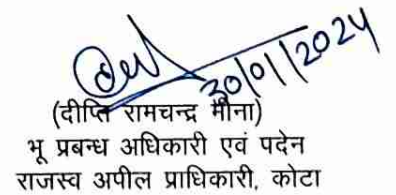 30/01/2024
(दीप्ति रामचन्द्र मीना)
भू प्रबन्ध अधिकारी एवं पदेन
राजस्व अपील प्राधिकारी, कोटा